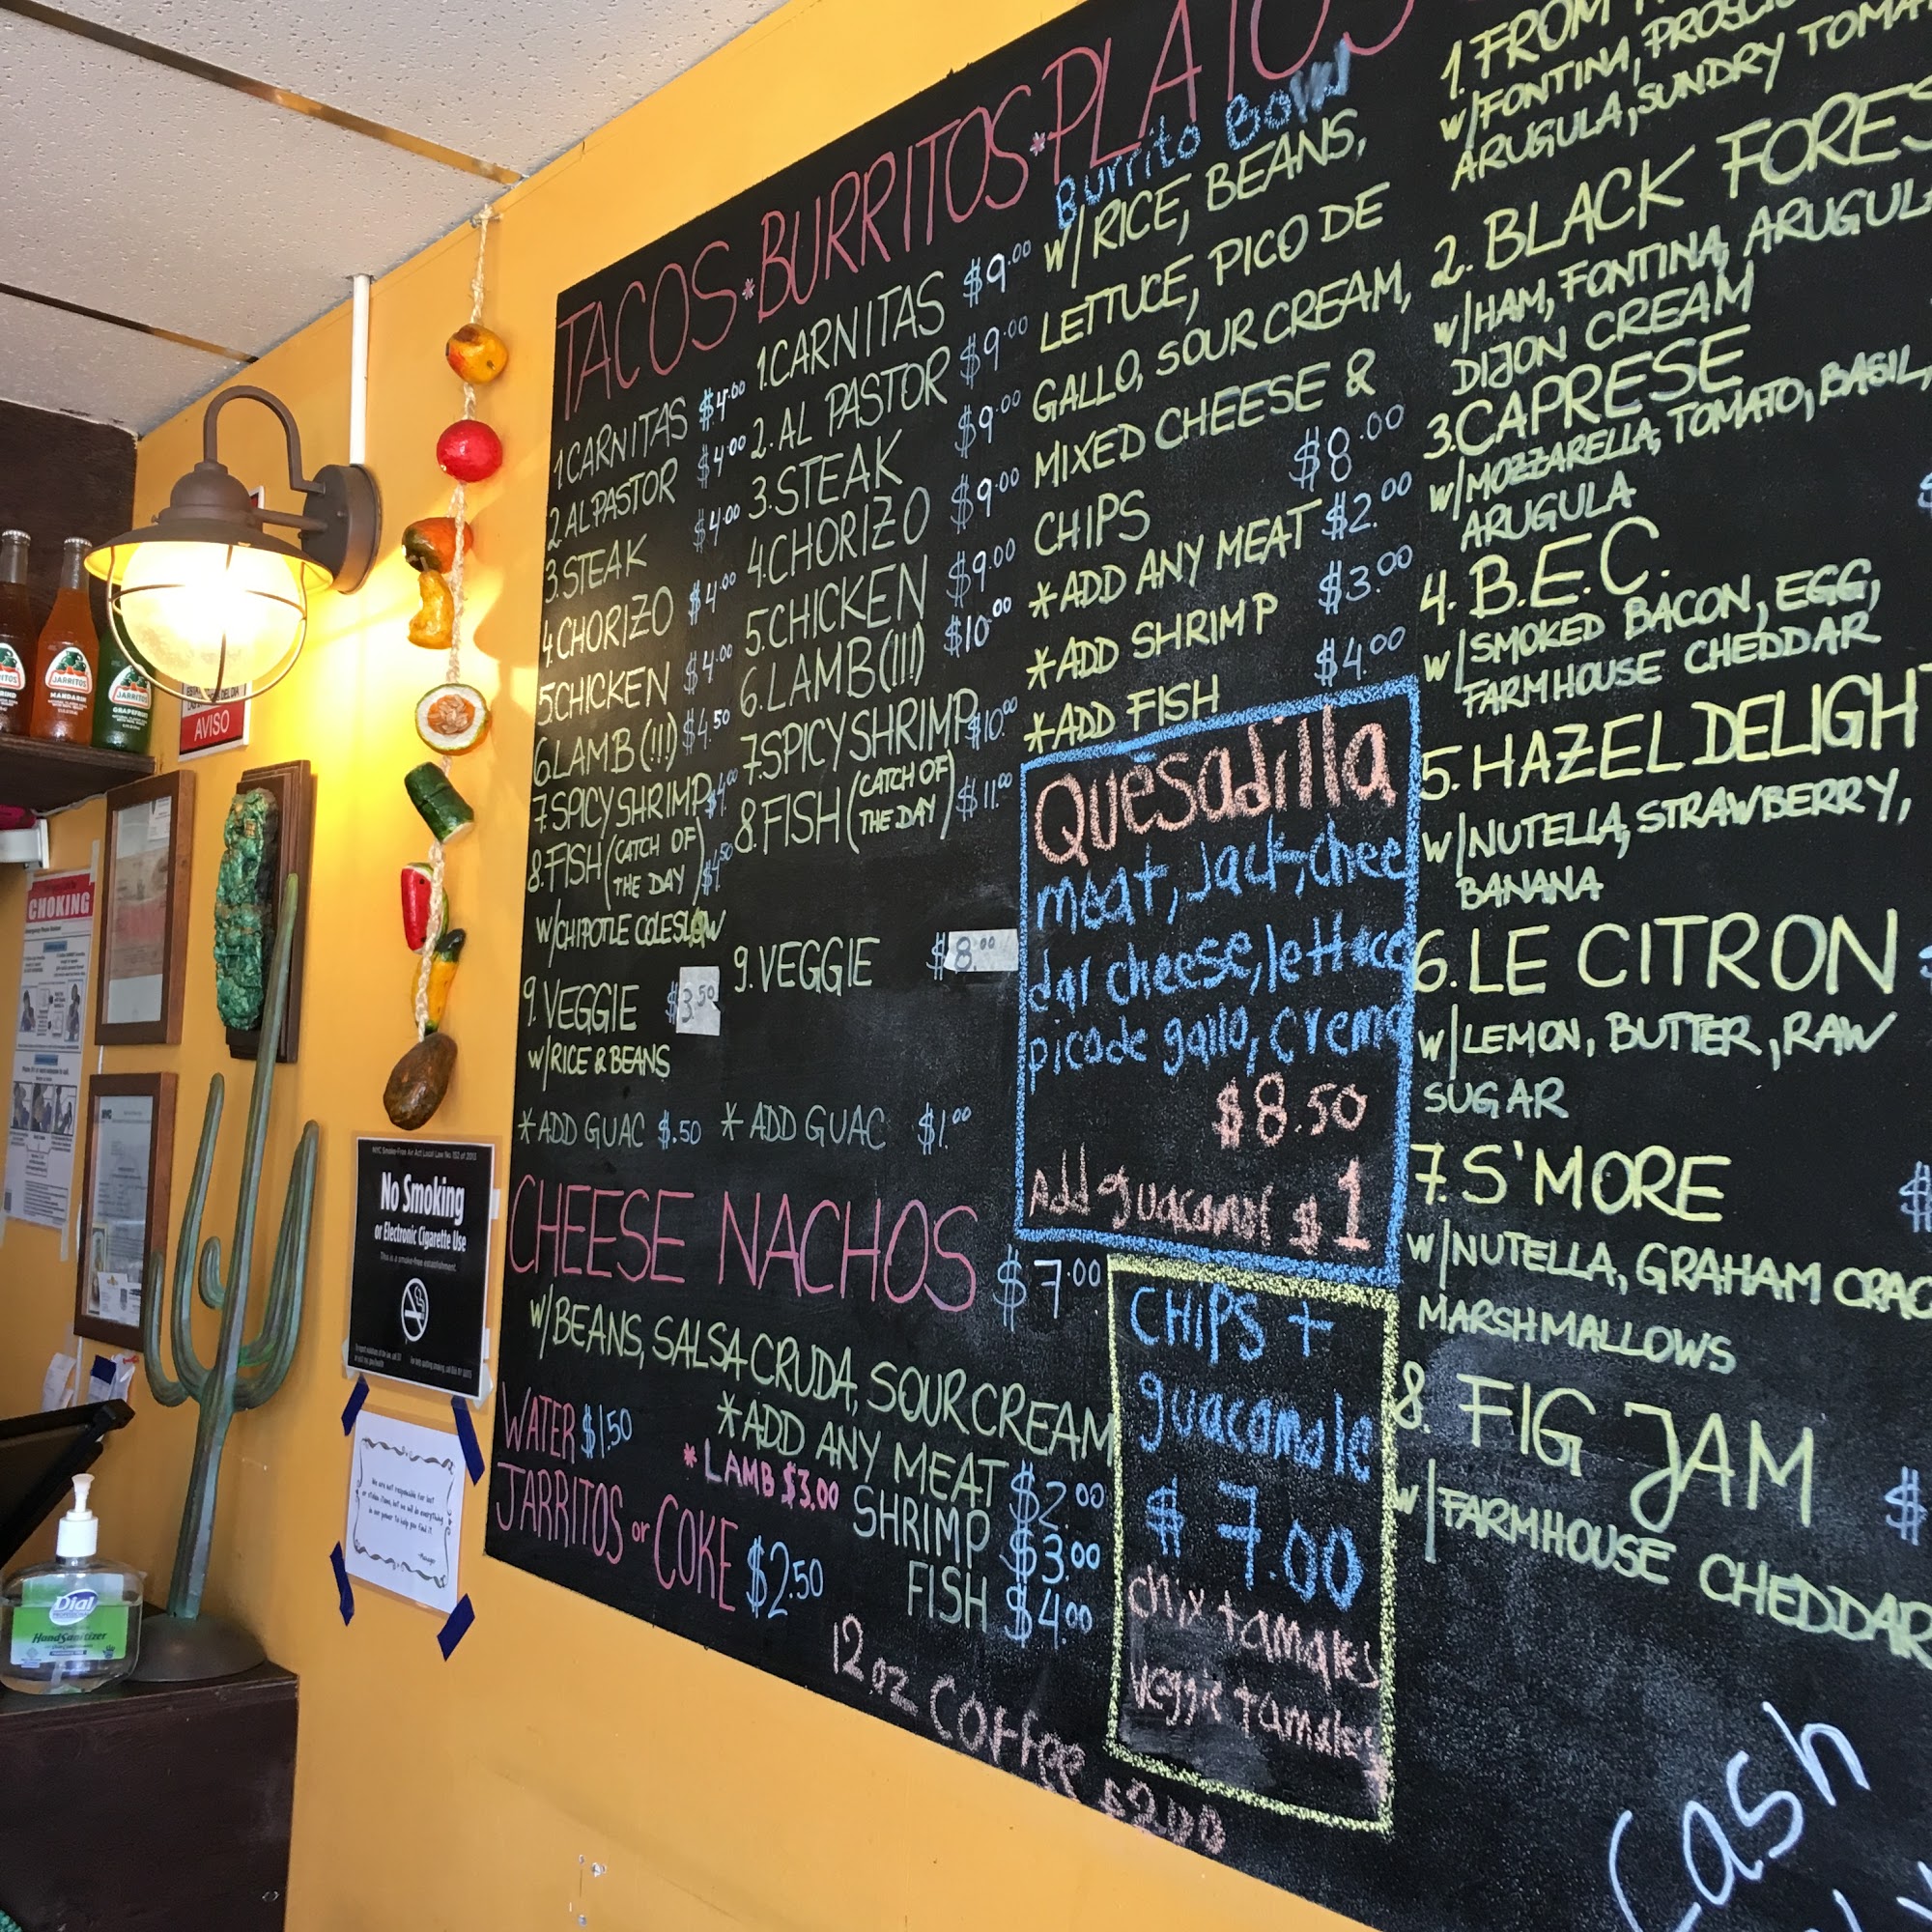 TACOS * BURRITOS * PLATOS
1 CARNITAS $4.00
2 AL PASTOR $4.00
3 STEAK $4.00
4 CHORIZO $4.00
5 CHICKEN $4.00
6. LAMB (!!!) $4.50
7. SPICY SHRIMP $4.00
8. FISH (CATCH OF THE DAY) $4.50
W/CHIPOTLE COLESLAW
9. VEGGIE $3.50
W/RICE & BEANS
* ADD GUAC $.50
1. CARNITAS $9.00
2. AL PASTOR $9.00
3. STEAK $9.00
4. CHORIZO $9.00
5. CHICKEN $9.00
6. LAMB (!!!) $10.00
7. SPICY SHRIMP $10.00
8. FISH (CATCH OF THE DAY) $11.00
9. VEGGIE $8.00
* ADD GUAC $1.00
Burrito Bowl
W/ RICE, BEANS,
LETTUCE, PICO DE
GALLO, SOUR CREAM,
MIXED CHEESE &
CHIPS $8.00
* ADD ANY MEAT $2.00
* ADD SHRIMP $3.00
* ADD FISH $4.00
Quesadilla
meat, Jack, chee
dar cheese, lettuce
pico de gallo, crema
$8.50
Add guacamol $1
CHEESE NACHOS $7.00
W/BEANS, SALSA CRUDA, SOUR CREAM
* ADD ANY MEAT $2.00
* LAMB $3.00
SHRIMP $3.00
FISH $4.00
WATER $1.50
JARRITOS or COKE $2.50
12 oz COFFee $2.00
CHIPS +
guacamole
$7.00
chix tamales
veggie tamales
1. FROM
W/FONTINA,
ARUGULA, SUNDRY
2. BLACK
W/HAM, FONTINA,
DIJON CREAM
3. CAPRESE
W/MOZZARELLA, TOMATO, BASIL,
ARUGULA
4. B.E.C.
W/SMOKED BACON, EGG,
FARMHOUSE CHEDDAR
5. HAZEL DELIGHT
W/NUTELLA, STRAWBERRY,
BANANA
6. LE CITRON
W/LEMON, BUTTER, RAW
SUGAR
7. S'MORE
W/NUTELLA, GRAHAM CRAC
MARSHMALLOWS
8. FIG JAM
W/FARMHOUSE CHEDDAR
Cash
JARRITOS
MANDARIN
JARRITOS
GRAPEFRUIT
AVISO
CHOKING
NYC Smoke-Free Air Act Local Law No. 152 of 2013
No Smoking
or Electronic Cigarette Use
This is a smoke-free establishment.
We are not responsible for lost
or stolen items, but we will do everything
in our power to help you find it.
-Manager
Dial
Hand Sanitizer